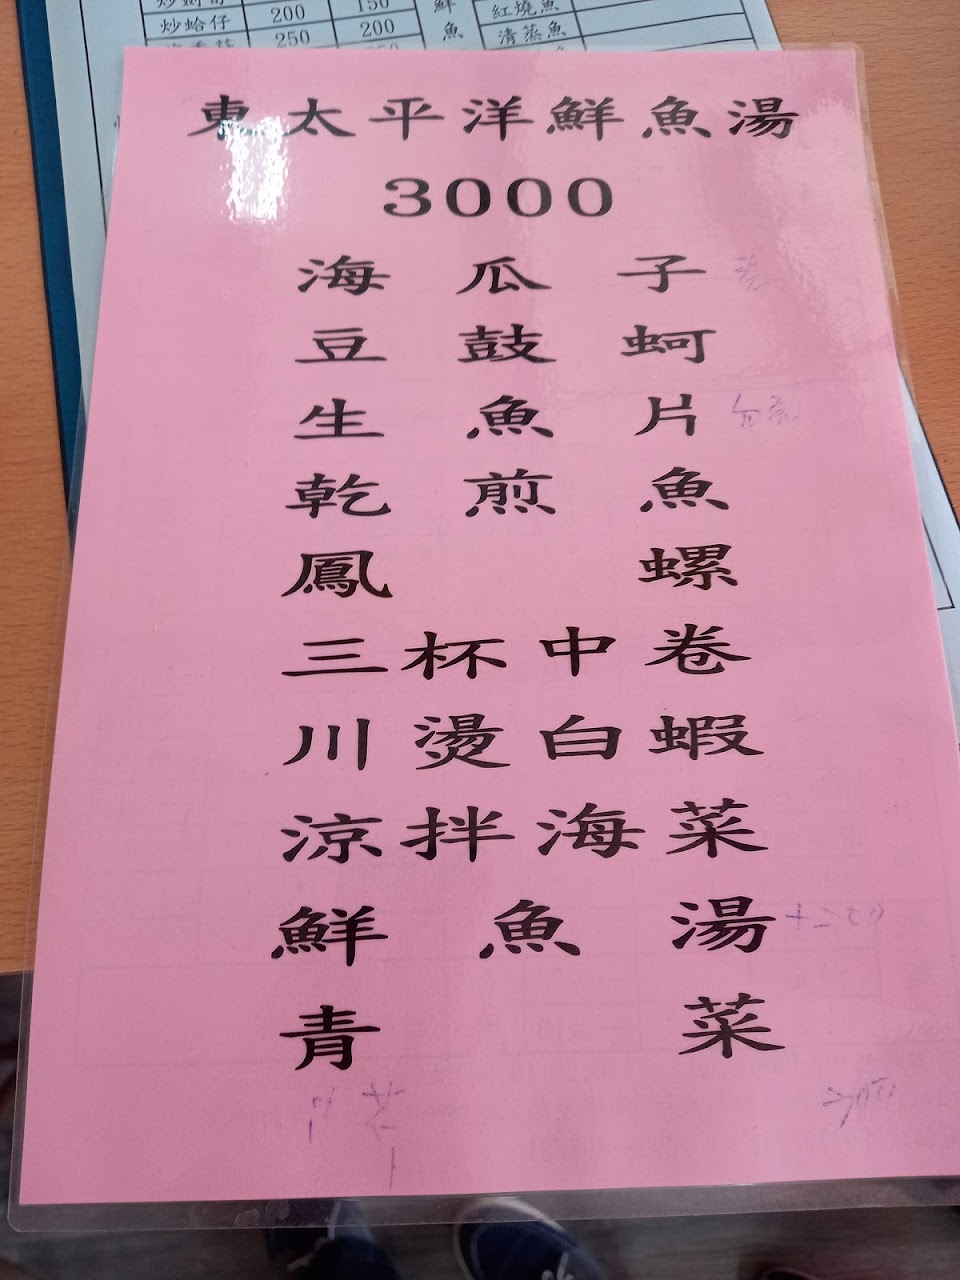 炒蛤仔 200 150 鮮 紅燒魚
250 200 魚 清蒸魚
東太平洋鮮魚湯
3000
海瓜子
豆鼓蚵
生魚片
乾煎魚
鳳螺
三杯中卷
川燙白蝦
涼拌海菜
鮮魚湯
青菜